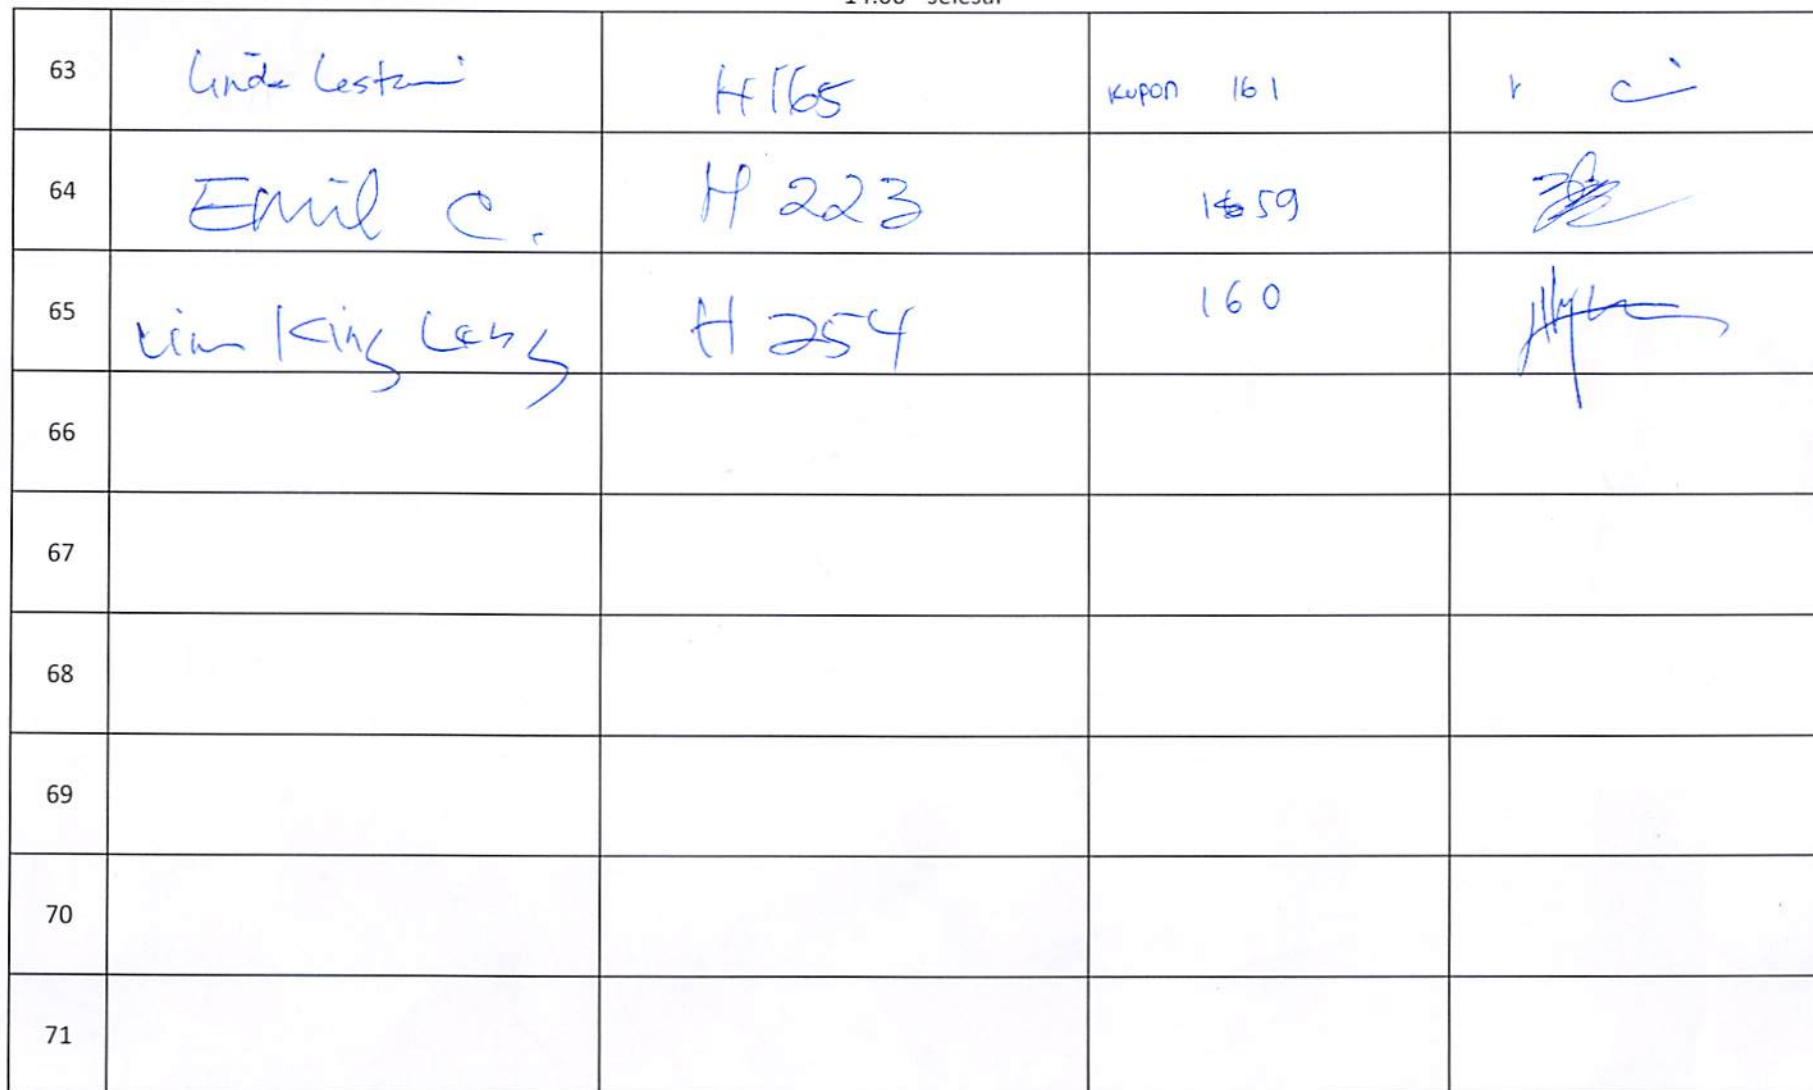 14.00 - selesai
63 Linda Lestari H165 Kupon 161
64 Emil C. H 223 159
65 Lim King H 254 160
66
67
68
69
70
71